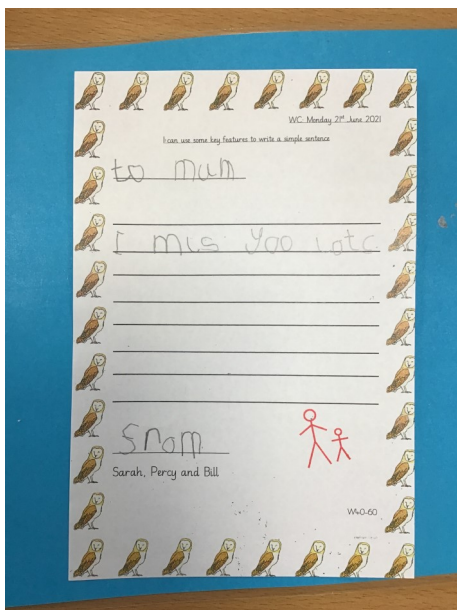 WC. Monday 21st June 2021
I can use some key features to write a simple sentence
to mum
I mis yoo lotc
from
Sarah, Percy and Bill
W40-60